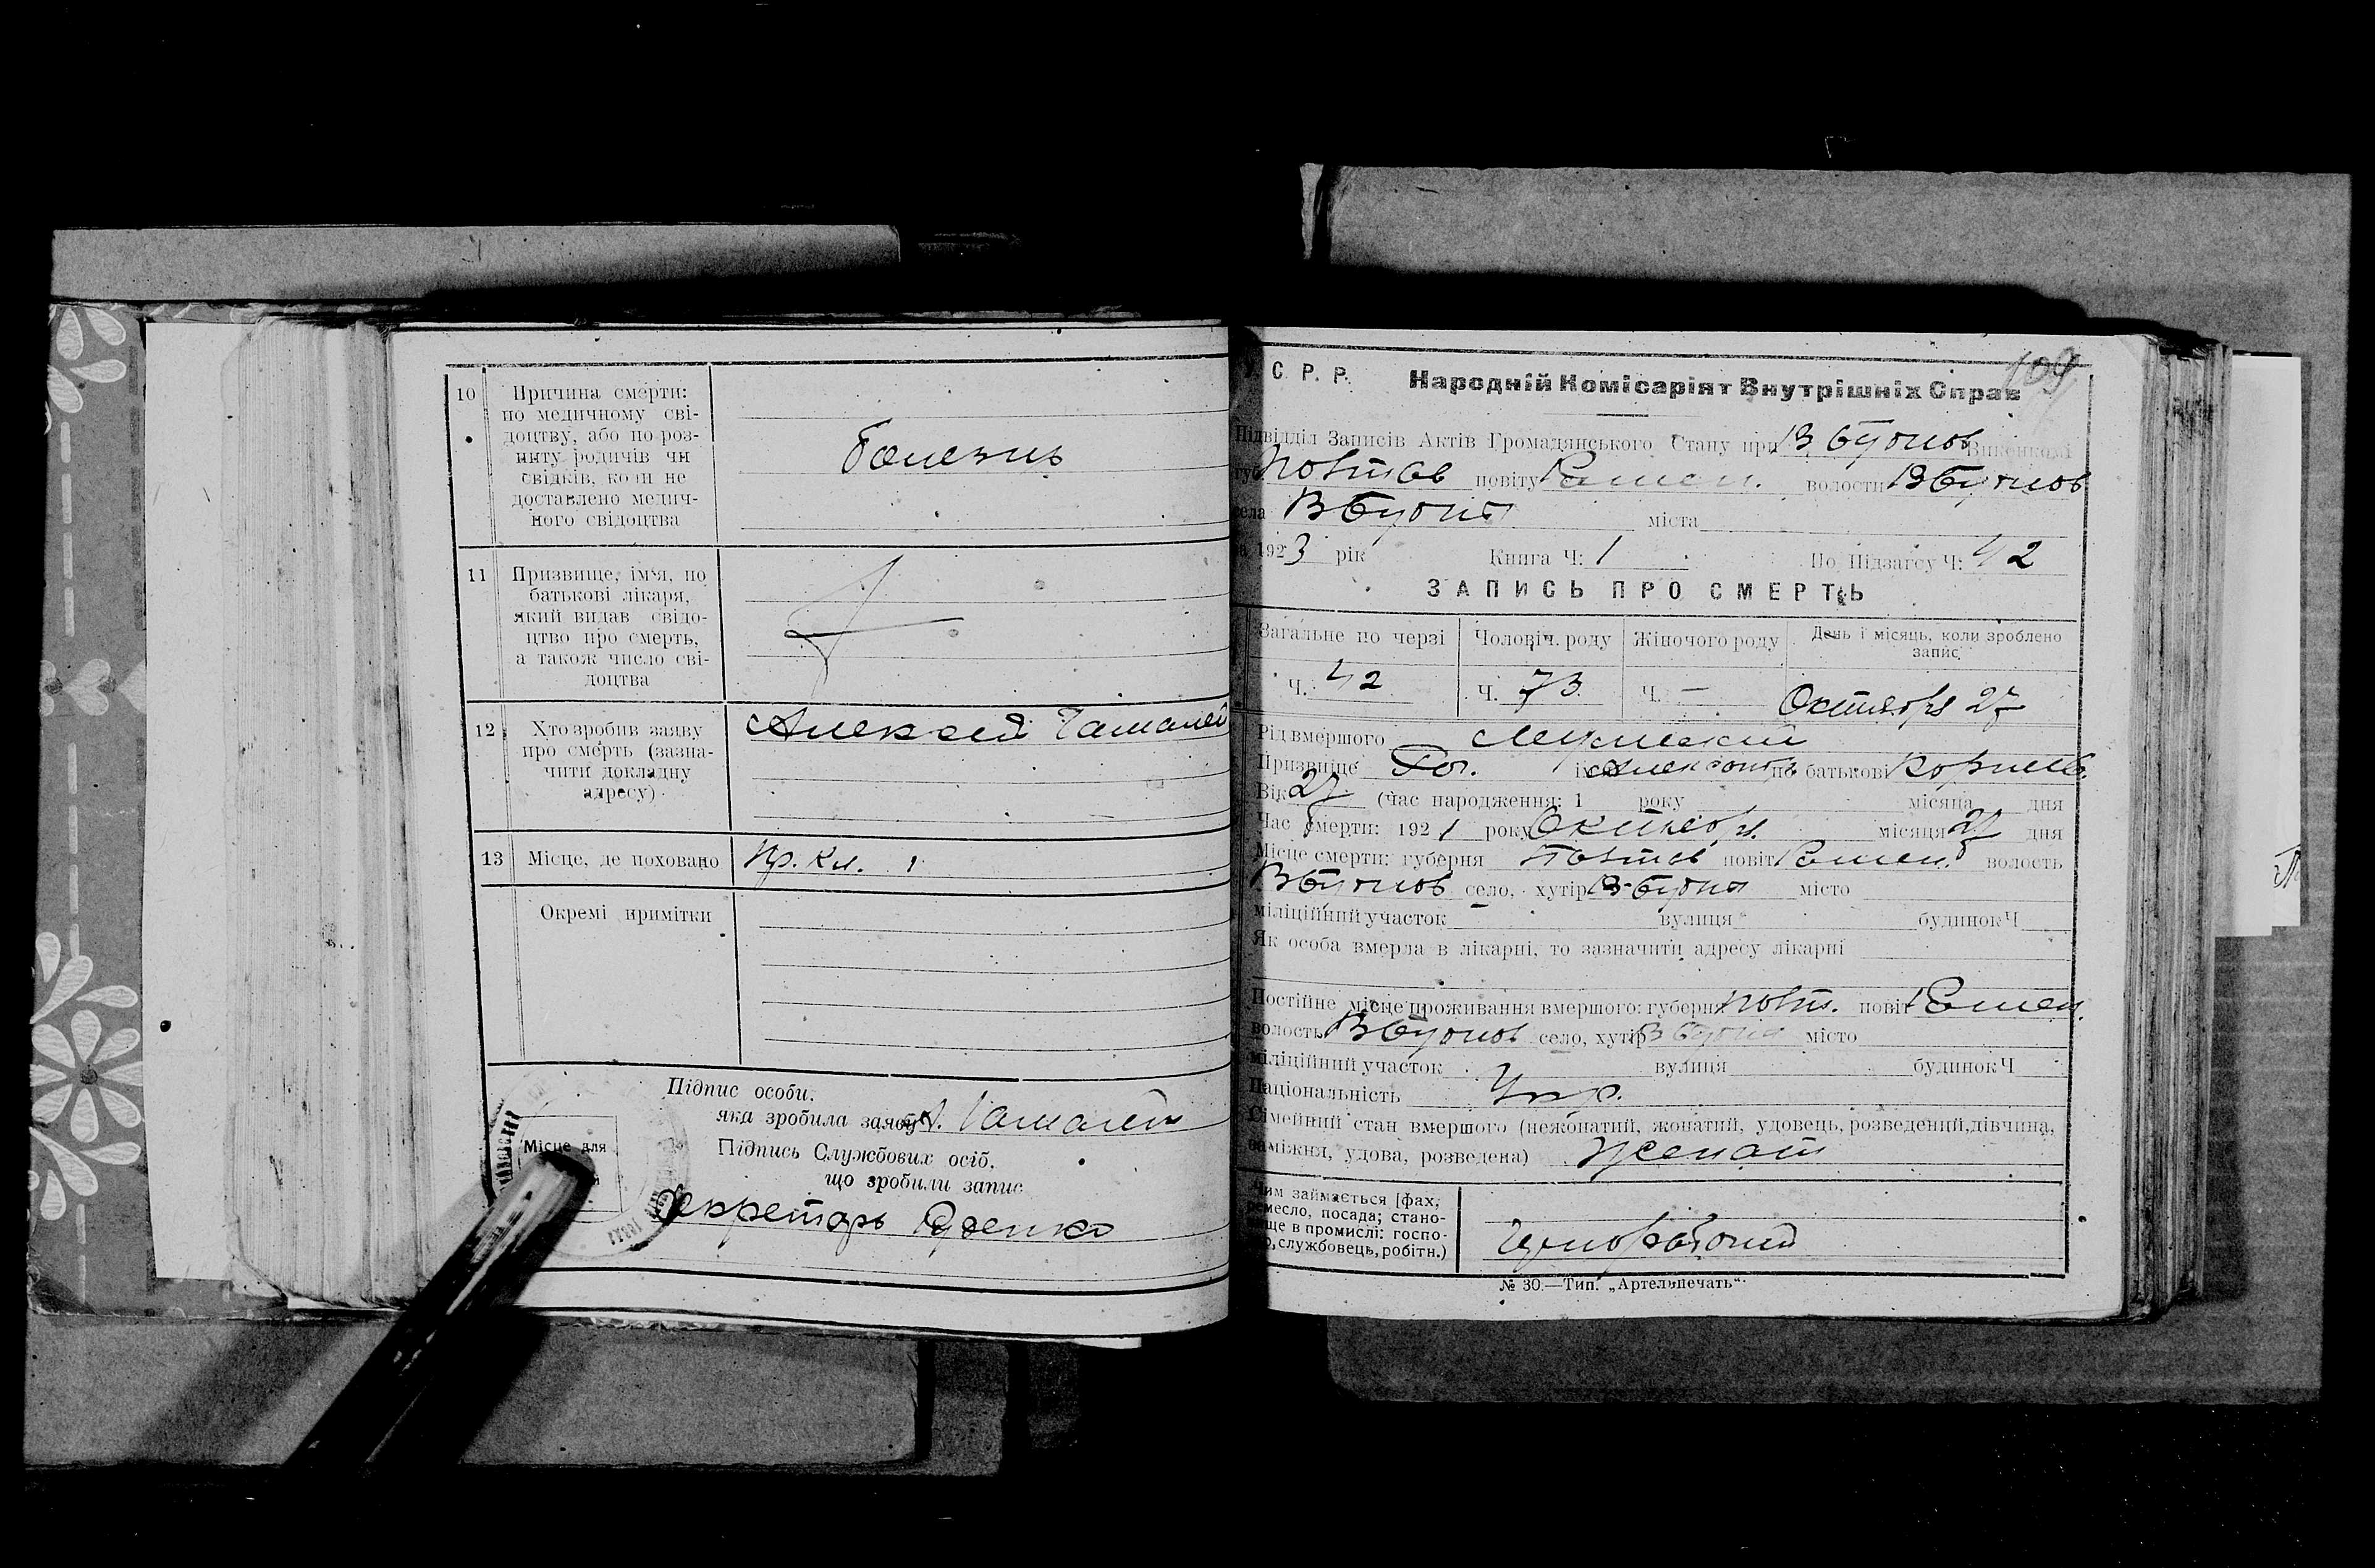 10 Причина смерти:
по медичному сві-
доцтву, або по роз-
питу родичів чи
свідків, коли не
доставлено медич-
ного свідоцтва
болезнь
11 Призвище, ім'я, по
батькові лікаря,
який видав свідо-
цтво про смерть,
а також число сві-
доцтва
12 Хто зробив заяву
про смерть (зазна-
чити докладну
адресу)
Алексей Гамалей
13 Місце, де поховано
Пр. Кл. 1
Окремі примітки
Підпис особи,
яка зробила заяву А. Гамалей
Місце для
Підпись Службових осіб,
що зробили запис
Секретарь
109
У. С. Р. Р. Народній Комісаріят Внутрішніх Справ
Підвідділ Записів Актів Громадянського Стану при Виконкомі
губ Полтав повіту Ромен. волости
села міста
на 1923 рік Книга Ч: 1 По Підзагсу Ч: 42
ЗАПИСЬ ПРО СМЕРТЬ
Загальне по черзі Чоловіч. роду Жіночого роду День і місяць, коли зроблено
запис
Ч. 42 Ч. 73 Ч. — Октября 27
Рід вмершого Мужеский
Призвище по батькові Корнеев.
Вік 27 (час народження: 1 року місяця дня
Час смерти: 1921 року Октября місяця 27 дня
Місце смерти: губерня Полтав повіт Ромен. волость
село, хутір місто
міліційний участок вулиця будинок Ч
Як особа вмерла в лікарні, то зазначити адресу лікарні
Постійне місце проживання вмершого: губерня Полт. повіт Ромен.
волость село, хутір місто
міліційний участок вулиця будинок Ч
Національність Укр.
Сімейний стан вмершого (нежонатий, жонатий, удовець, розведений, дівчина,
заміжня, удова, розведена) Женат
Чим займається [фах,
ремесло, посада; стано-
вище в промислі: госпо-
, службовець, робітн.)
№ 30.—Тип. „Артельпечать“